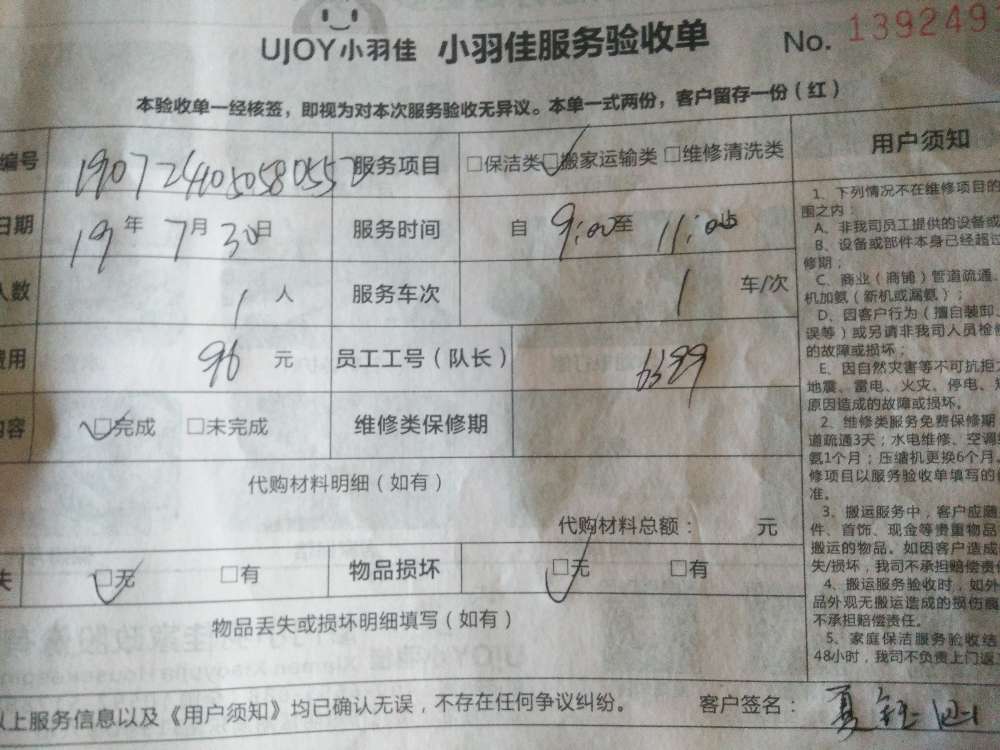 UJOY小羽佳 小羽佳服务验收单 No. 139249
本验收单一经核签，即视为对本次服务验收无异议。本单一式两份，客户留存一份（红）
编号 服务项目 □保洁类 □搬家运输类 □维修清洗类
日期 19年 7月 30日 服务时间 自 9:00至 11:00止
人数 1 人 服务车次 1 车/次
费用 96 元 员工工号（队长） 6399
内容 □完成 □未完成 维修类保修期
代购材料明细（如有）
代购材料总额： 元
失 □无 □有 物品损坏 □无 □有
物品丢失或损坏明细填写（如有）
以上服务信息以及《用户须知》均已确认无误，不存在任何争议纠纷。 客户签名：
用户须知
1、下列情况不在维修项目的
围之内：
A、非我司员工提供的设备或
B、设备或部件本身已经超过
修期；
C、商业（商铺）管道疏通、
机加氨（新机或漏氨）；
D、因客户行为（擅自装卸、
误等）或另请非我司人员检修
的故障或损坏；
E、因自然灾害等不可抗拒
地震、雷电、火灾、停电、
原因造成的故障或损坏。
2、维修类服务免费保修期
道疏通3天；水电维修、空调
氨1个月；压缩机更换6个月。
修项目以服务验收单填写的
准。
3、搬运服务中，客户应随
件、首饰、现金等贵重物品
搬运的物品。如因客户造成
失/损坏，我司不承担赔偿责
4、搬运服务验收时，如外
品外观无搬运造成的损伤
不承担赔偿责任。
5、家庭保洁服务验收结
48小时，我司不负责上门返